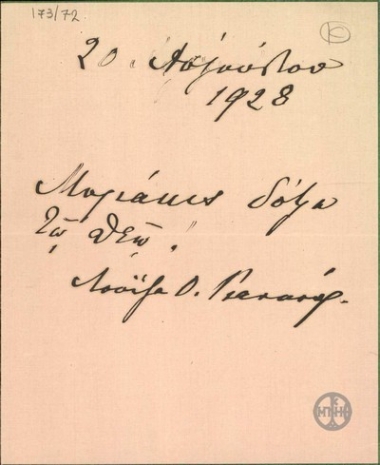 173/72
20 Αὐγούστου
1928
Μυριάκις δόξα
τῷ Θεῷ!
Λουΐζα Ο.